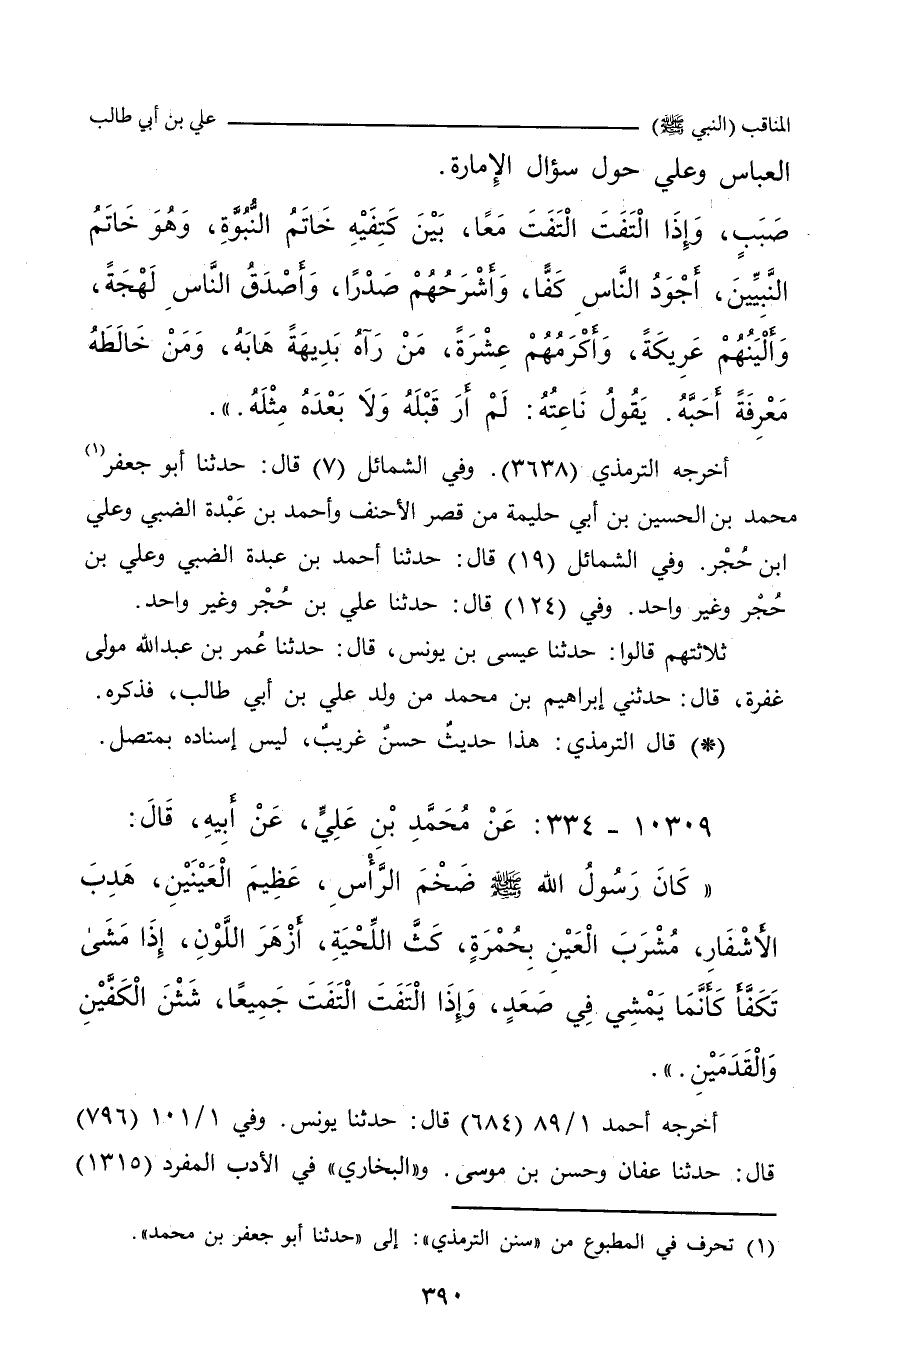 المناقب (النبي ﷺ) علي بن أبي طالب
العباس وعلي حول سؤال الإمارة.
صَبَبٍ، وَإِذَا الْتَفَتَ الْتَفَتَ مَعًا، بَيْنَ كَتِفَيْهِ خَاتَمُ النُّبُوَّةِ، وَهُوَ خَاتَمُ
النَّبِيِّينَ، أَجْوَدُ النَّاسِ كَفًّا، وَأَشْرَحُهُمْ صَدْرًا، وَأَصْدَقُ النَّاسِ لَهْجَةً،
وَأَلْيَنُهُمْ عَرِيكَةً، وَأَكْرَمُهُمْ عِشْرَةً، مَنْ رَآهُ بَدِيهَةً هَابَهُ، وَمَنْ خَالَطَهُ
مَعْرِفَةً أَحَبَّهُ. يَقُولُ نَاعِتُهُ: لَمْ أَرَ قَبْلَهُ وَلَا بَعْدَهُ مِثْلَهُ.».
أخرجه الترمذي (٣٦٣٨). وفي الشمائل (٧) قال: حدثنا أبو جعفر(١)
محمد بن الحسين بن أبي حليمة من قصر الأحنف وأحمد بن عَبْدة الضبي وعلي
ابن حُجْر. وفي الشمائل (١٩) قال: حدثنا أحمد بن عبدة الضبي وعلي بن
حُجْر وغير واحد. وفي (١٢٤) قال: حدثنا علي بن حُجْر وغير واحد.
ثلاثتهم قالوا: حدثنا عيسى بن يونس، قال: حدثنا عُمر بن عبدالله مولى
غفرة، قال: حدثني إبراهيم بن محمد من ولد علي بن أبي طالب، فذكره.
(*) قال الترمذي: هذا حديثٌ حسنٌ غريبٌ، ليس إسناده بمتصل.
١٠٣٠٩ - ٣٣٤: عَنْ مُحَمَّدِ بْنِ عَلِيٍّ، عَنْ أَبِيهِ، قَالَ:
« كَانَ رَسُولُ اللهِ ﷺ ضَخْمَ الرَّأْسِ، عَظِيمَ الْعَيْنَيْنِ، هَدِبَ
الأَشْفَارِ، مُشْرَبَ الْعَيْنِ بِحُمْرَةٍ، كَثَّ اللِّحْيَةِ، أَزْهَرَ اللَّوْنِ، إِذَا مَشَىٰ
تَكَفَّأَ كَأَنَّمَا يَمْشِي فِي صَعَدٍ، وَإِذَا الْتَفَتَ الْتَفَتَ جَمِيعًا، شَثْنَ الْكَفَّيْنِ
وَالْقَدَمَيْنِ.».
أخرجه أحمد ٨٩/١ (٦٨٤) قال: حدثنا يونس. وفي ١٠١/١ (٧٩٦)
قال: حدثنا عفان وحسن بن موسى. و«البخاري» في الأدب المفرد (١٣١٥)
(١) تحرف في المطبوع من «سنن الترمذي»: إلى «حدثنا أبو جعفر بن محمد».
٣٩٠